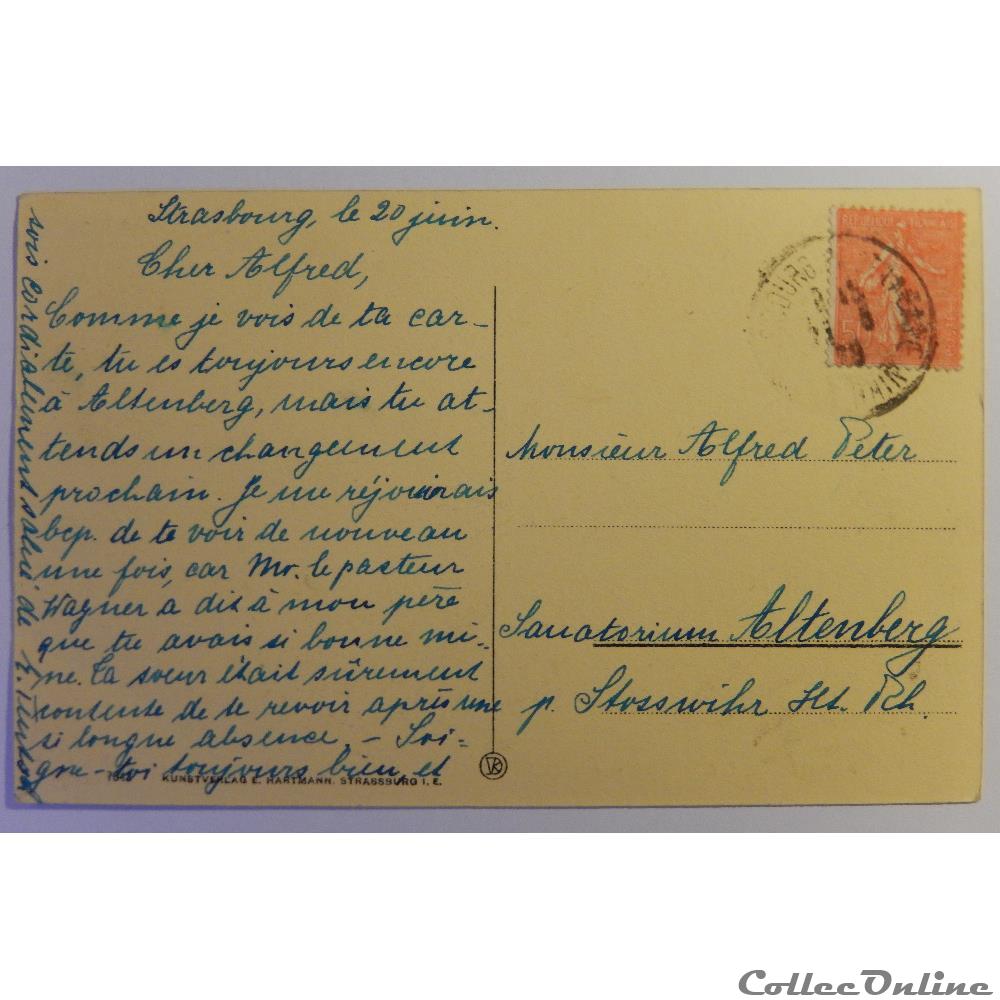 Strasbourg, le 20 juin.
Cher Alfred,
Comme je vois de ta car-
te, tu es toujours encore
à Altenberg, mais tu at-
tends un changement
prochain. Je me réjouirais
bcp. de te voir de nouveau
une fois, car Mr. le pasteur
Wagner a dit à mon père
que tu avais si bonne mi-
ne. Ta soeur était sûrement
contente de te revoir après une
si longue absence. - Soi-
gne-toi toujours bien, et
sois cordialement salué de E.
KUNSTVERLAG E. HARTMANN. STRASSBURG I. E.
REPUBLIQUE FRANÇAISE
50
Monsieur Alfred Peter
Sanatorium Altenberg
p. Stosswihr Ht. Rh.
CollecOnline